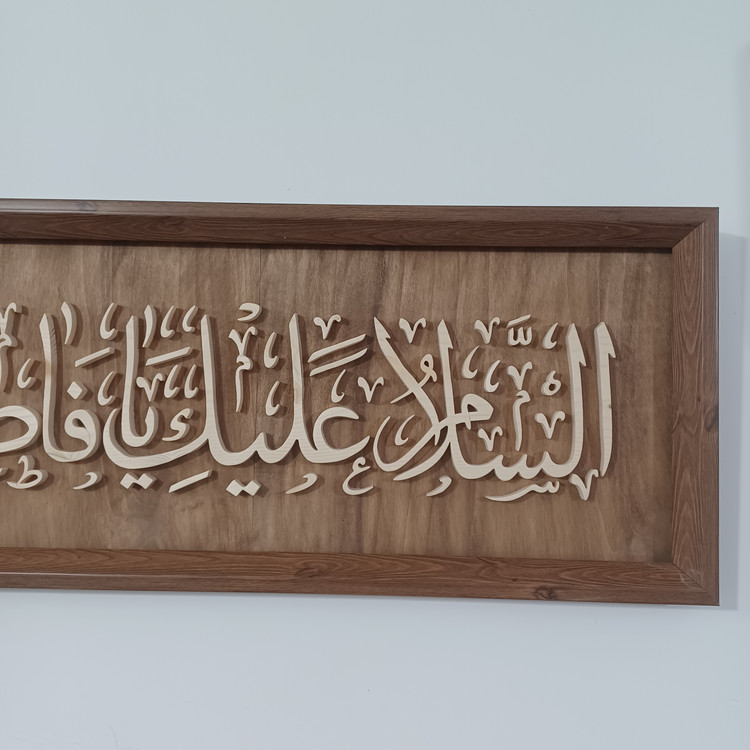 السَّلَامُ عَلَيْكِ يَا فَاط